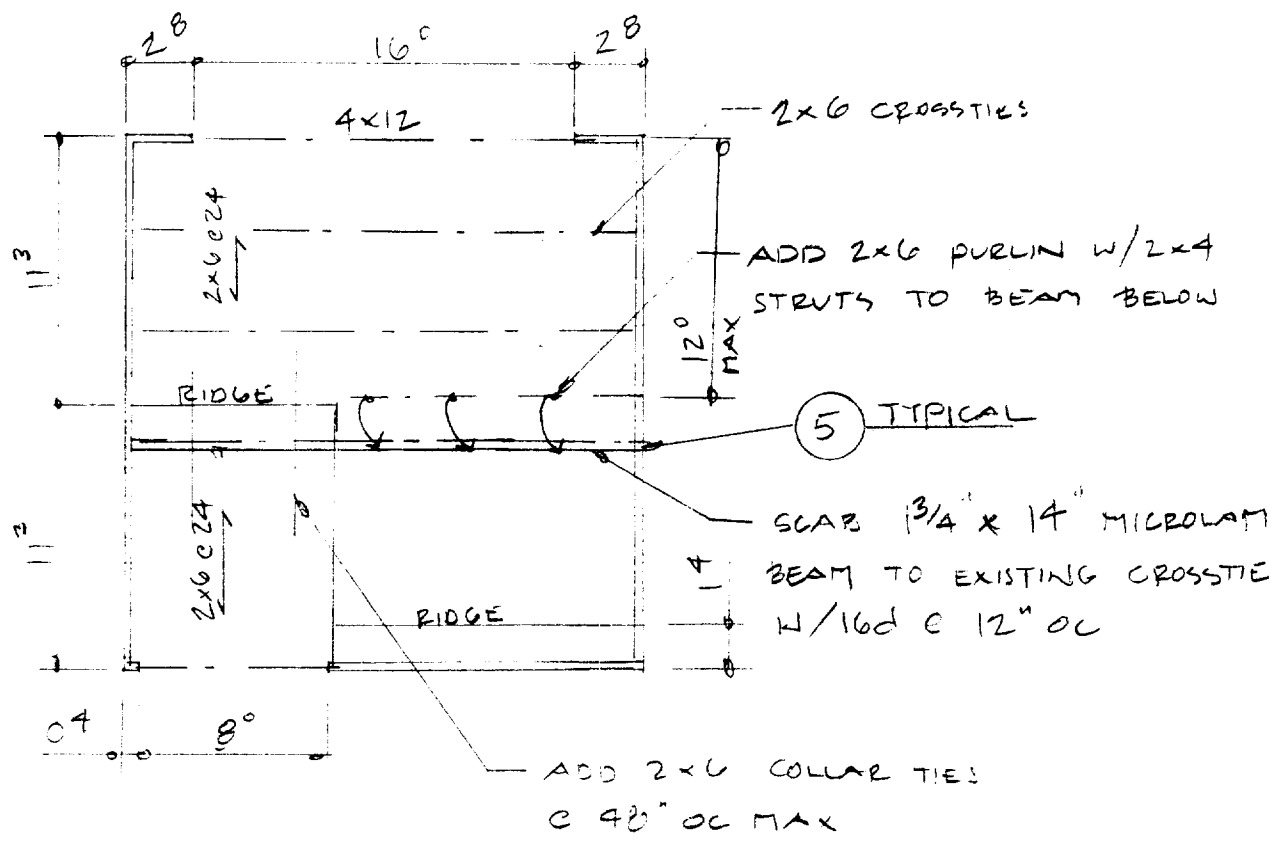 2⁸ 16⁰ 2⁸
4x12
2x6 CROSSTIES
2x6 @ 24
11³
ADD 2x6 PURLIN W/2x4
STRUTS TO BEAM BELOW
12⁰
MAX
RIDGE
5 TYPICAL
SCAB 1 3/4" x 14" MICROLAM
BEAM TO EXISTING CROSSTIE
W/16d @ 12" OC
11³
2x6 @ 24
1⁴
RIDGE
0⁴ 8⁰
ADD 2x6 COLLAR TIES
@ 48" OC MAX